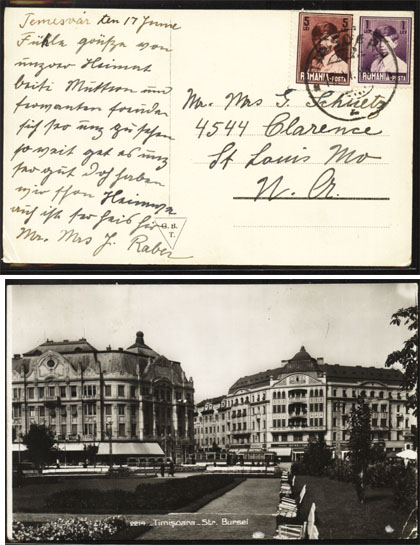 Temesvár den 17 Juni
Fühle grüße von
unzerer Heimat
beiti Muttron und
ferwanten freuden
sich ser unz zu sehen
so weit get es unz
ser gut Doch haben
wir schon Heimwe
auch ist ser heis hir
Mr. Mrs J. Raber
5 LEI
ROMANIA POSTA
1 LEU
ROMANIA POSTA
Mr. Mrs J. Schuetz
4544 Clarence
St Louis Mo
N. A.
G.B.
T.
2214 Timișoara Str. Bursei